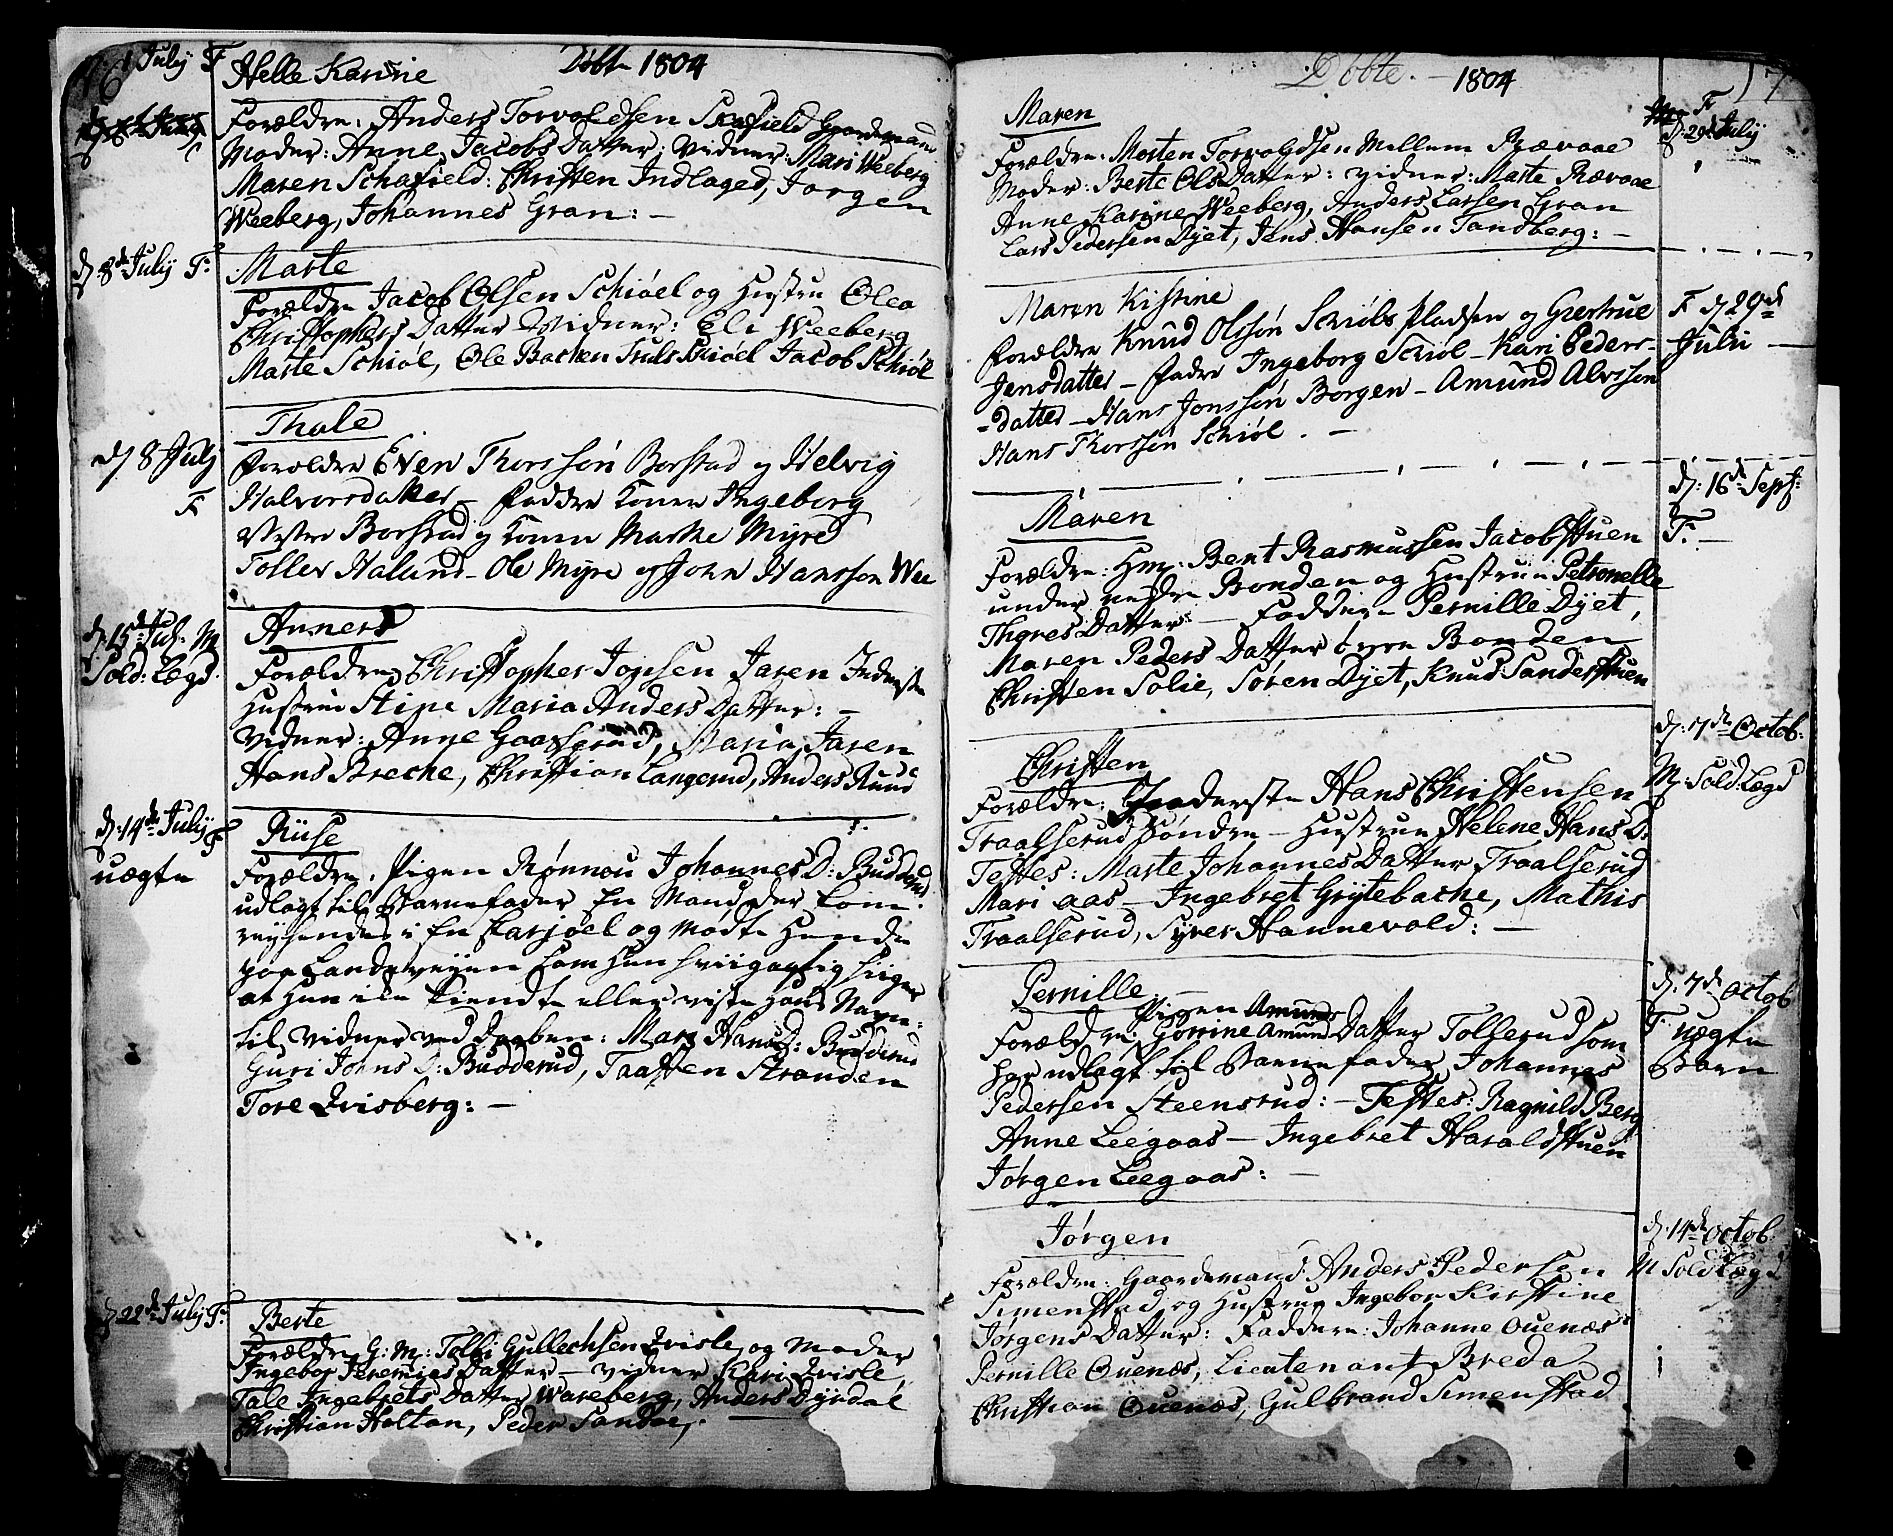 16
1 July F
Helle Karine
Døbte 1804
Forældre: Anders Torvoldsen Skafield Gaardmand
Moder: Anne Jacobs Datter: Vidner: Mari Weeberg
Maren Schafield: Christen Indlaged, Jørgen
Weeberg, Johannes Gran: —
d: 8de July F:
Marte
Forældre Jacob Olsen Schiøel og Hustru Olea
Christophers Datter Vidner: Eli Weeberg
Marte Schiøl, Ole Backen Truls Schiøel Jacob Schiøl
d 8 July
F
Thale
Forældre Even Thorssøn Borstad og Helvig
Halvorsdatter — Faddre Konen Ingeborg
Vestre Borstad og Konen Marthe Myre
Tollev Halund — Ole Myre og John Hansson Wee
d: 15de Jul: M
Sold: Lægd.
Anners
Forældre, Christopher Jopsen Jaren Inderste
Hustrue Stine Maria Anders Datter: —
Vidner: Anne Gaasserud, Maria Jaren
Hans Breche, Christian Langerud, Anders Ruud
d: 14de July
F
uægte
Riise
Forældre, Pigen Rønnou Johannes D: Budderud
udlagt til Barnefader En Mand der kom
reysende i En Carjoel og mødte Hende
paa Landeveyen som hun
at hun ikke kiendte eller viste hans Navn:
til Vidner ved Daaben: Mari Hans D: Budderud
Guri Johns D: Budderud, Taasten Stranden
Tore Qvisberg: —
d 22de July F:
Berte
Forældre G: M: Tolli Gullechsen Qvisle, og Moder
Ingebor Jeremias Datter — Vidner Kari Qvisle,
Tale Ingebrets Datter Wareberg, Anders Dyrdal
Christian Holtan, Peder Sandae,
Døbte. — 1804
17
Maren
Fr
d: 29de July
Forældre: Morten Torvoldsen Mellem Rævaae
Moder: Berte Ols Datter: Vidner: Marte Rævaae
Anne Karine Weeberg, Anders Larsen Gran
Lars Pedersen Dyet, Jens Hansen Tandberg: —
Maren Kistine
F d 29de
Julii —
Forældre Knud Olssøn Schiøls Pladsen og Giertrue
Jensdatter — Fadre Ingeborg Schiøl — Kari Peders-
-datter — Hans Jonssøn Borgen — Amund Alvssøn
Hans Thorssøn Schiøl. —
d: 16de Sept:
F: —
Maren
Forældre: Hm: Bent Rasmussen Jacobstuen
under nedre Bonden og Hustrue Petronelle
Thores Datter — Faddere Pernille Dyet,
Maren Peders Datter øvre Bonden
Christen Solie, Søren Dyet, Knud Sanderstuen
d: 7de Octob:
M: Sold: Lægd
Christen
Forældre: Inderste Hans Christensen
Traalserud Søndre — Hustrue Helene Hans D:
Testes: Marte Johannes Datter Traalserud
Mari Aas — Ingebret Grytebache, Mathis
Traalserud, Syver Hannevold: —
d. 7de Octob
F: uægte
Barn
Pernille —
Pigen Amunds
Forældre Gorine Amunds Datter Tollerud som
har udlagt til Barnefader Johannes
Pedersen Steensrud: — Testes: Ragnild Berg
Anne Leegaas — Ingebret Haraldstuen
Jørgen Leegaas: —
d: 14de Octob
M Sold Lægd
Jørgen
Forældre: Gaardemand Anders Pedersen
Simenstad og Hustrue Ingebor Kirstine
Jørgens Datter: Faddere: Johanne Ouenæs
Pernille Ouenæs, Lieutenant Breda
Christian Ouenæs, Gulbrand Simenstad